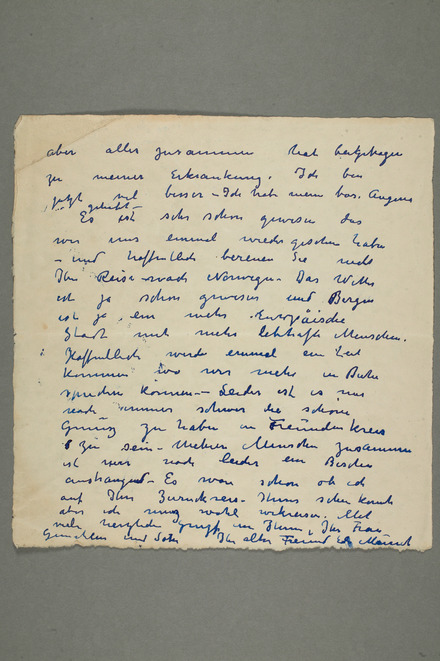 aber alles zusammen hat beigetragen
zu meiner Erkrankung. Ich bin
jetzt viel besser – Ich hab mein
Es ist sehr schön gewesen das
wir uns einmal wieder gesehen habe
– und hoffentlich bereuen Sie nicht
Ihr Reise nach Norwegen – Das
ist ja schön gewesen und Bergen
ist ja ein mehr Europäische
Stadt mit mehr lebhafte Menschen.
Hoffentlich werde einmal ein Zeit
kommen wo wir mehr in Ruhe
sprechen können – Leider ist es mir
noch immer schwer die schöne
zu haben in Freunden Kreis
zu sein – Mehrere Menschen zusammen
ist mir noch leider ein Bischen
anstrengend – Es war schön ob ich
auf Ihre Sie sehen konnte
aber ich muss wohl Mit
viele herzliche an Ihnen, Ihr Frau
und Ihr alter Freund Edv Munch